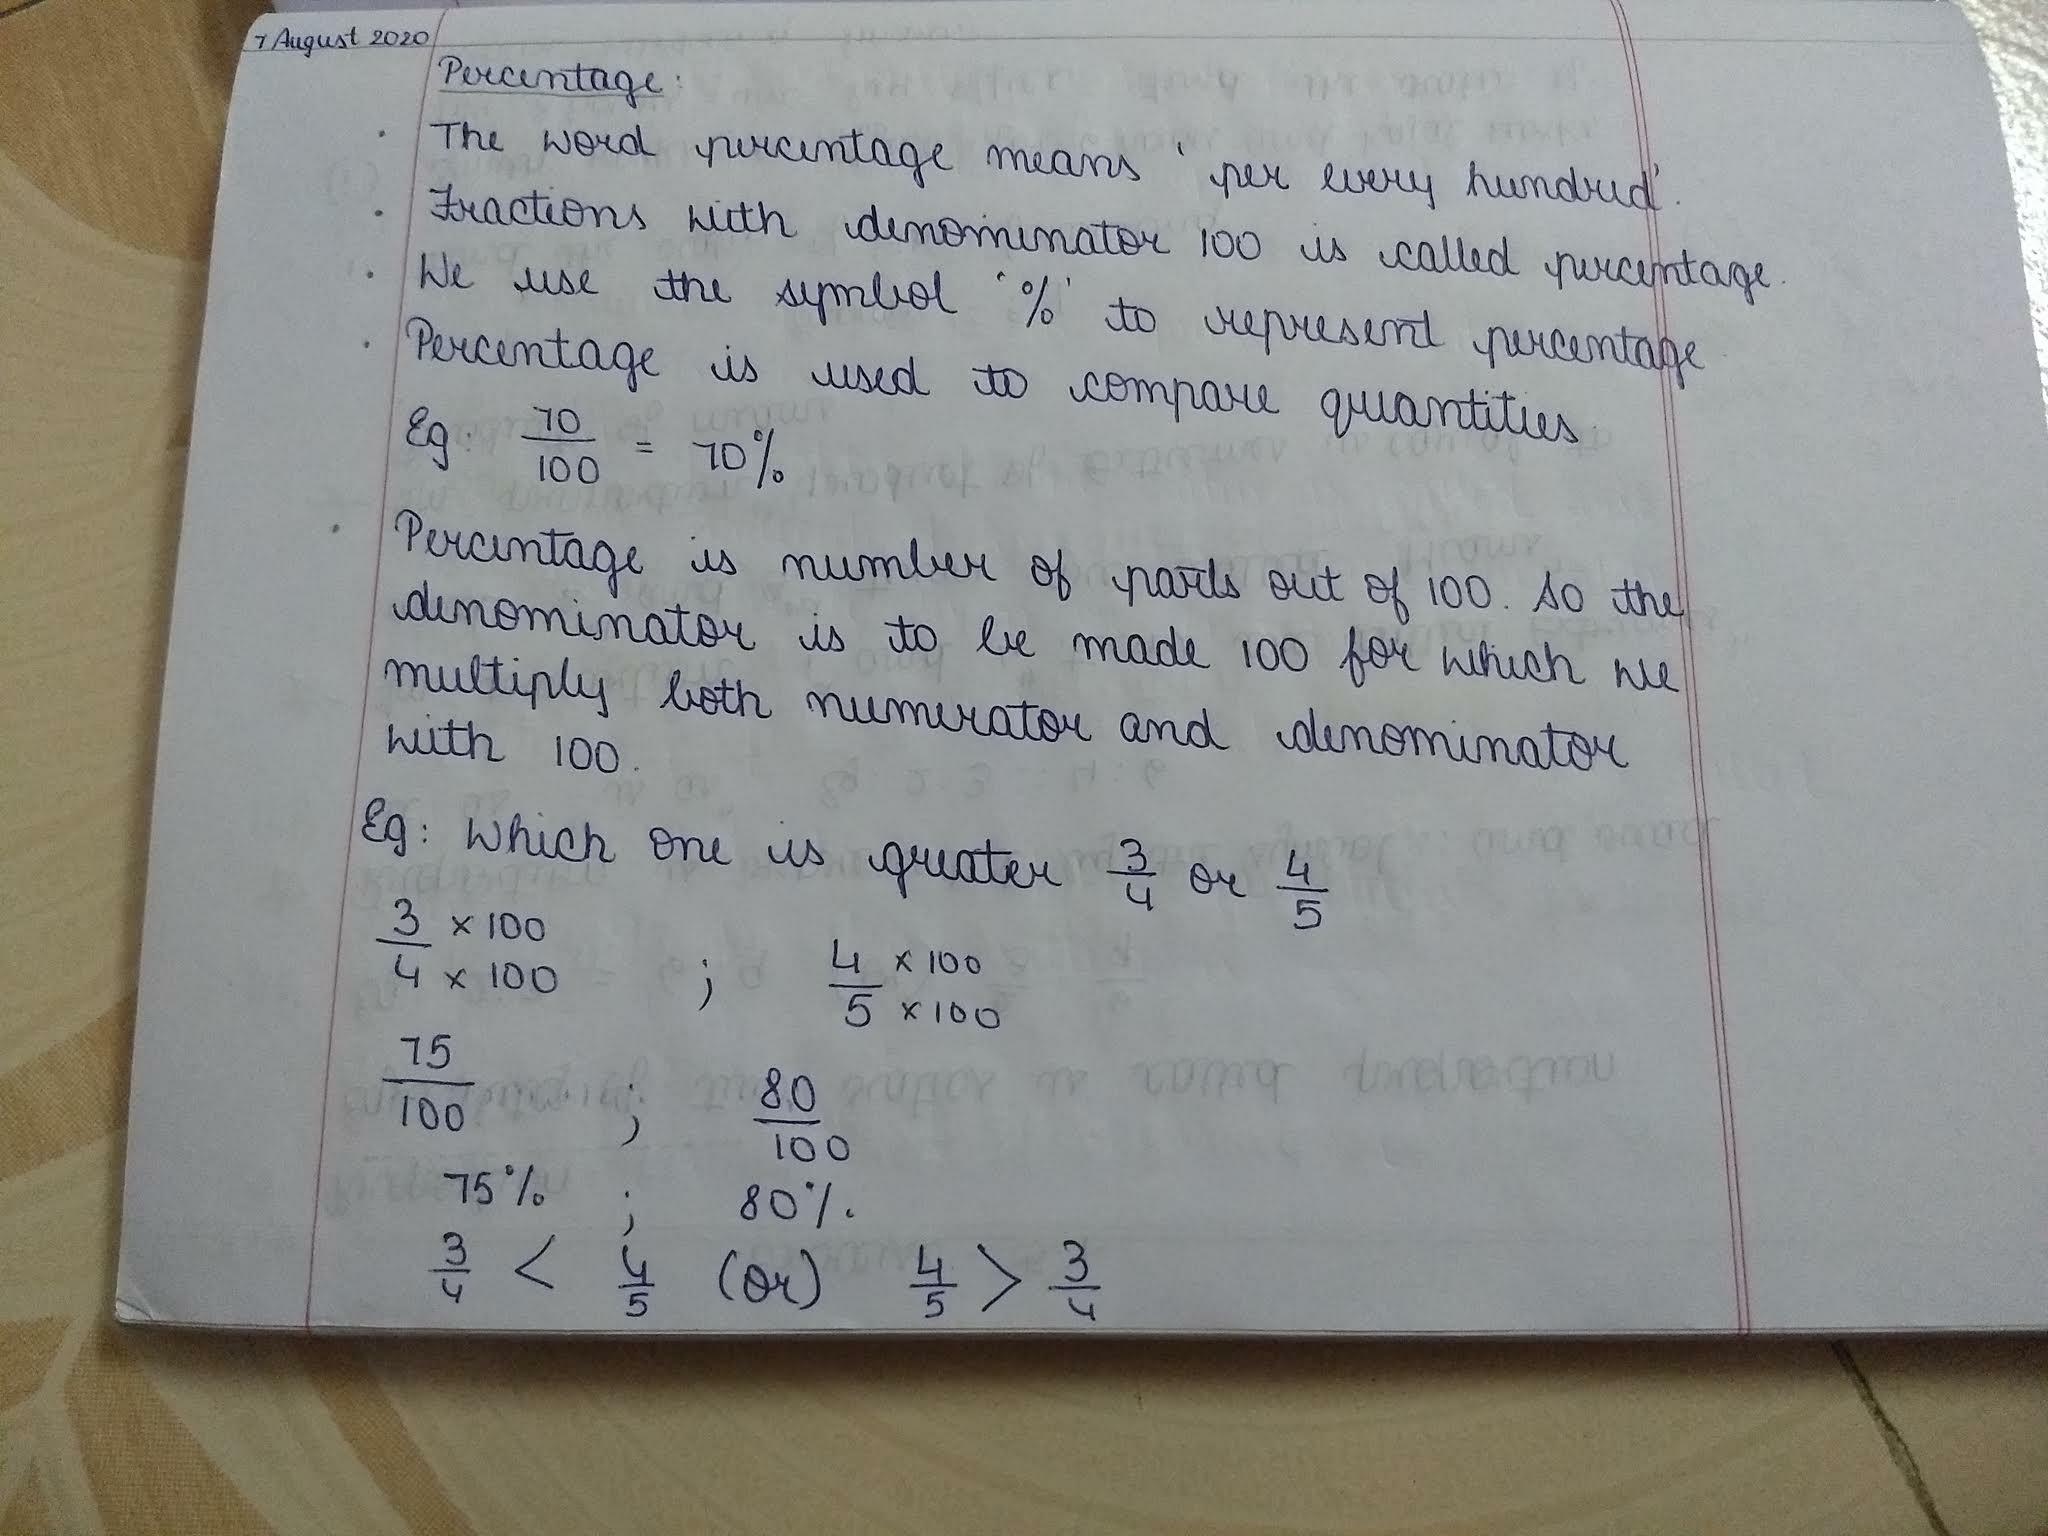 7 August 2020
Percentage:
· The word percentage means 'per every hundred'.
· Fractions with denominator 100 is called percentage.
· We use the symbol '%' to represent percentage
· Percentage is used to compare quantities.
Eg: 70/100 = 70%
· Percentage is number of parts out of 100. So the
denominator is to be made 100 for which we
multiply both numerator and denominator
with 100.
Eg: Which one is greater 3/4 or 4/5
3 × 100 / 4 × 100 ; 4 × 100 / 5 × 100
75/100 ; 80/100
75% ; 80%.
3/4 < 4/5 (or) 4/5 > 3/4